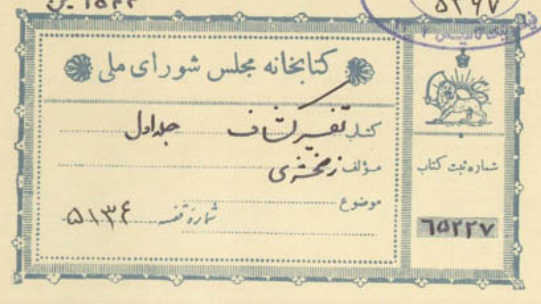 ۵۲۹۷
کتابخانه مجلس شورای ملی
کتاب تفسیر کشاف جلد اول
مؤلف زمخشری
موضوع
شماره قفسه ۵۱۳۴
شماره ثبت کتاب
۶۵۲۲۷